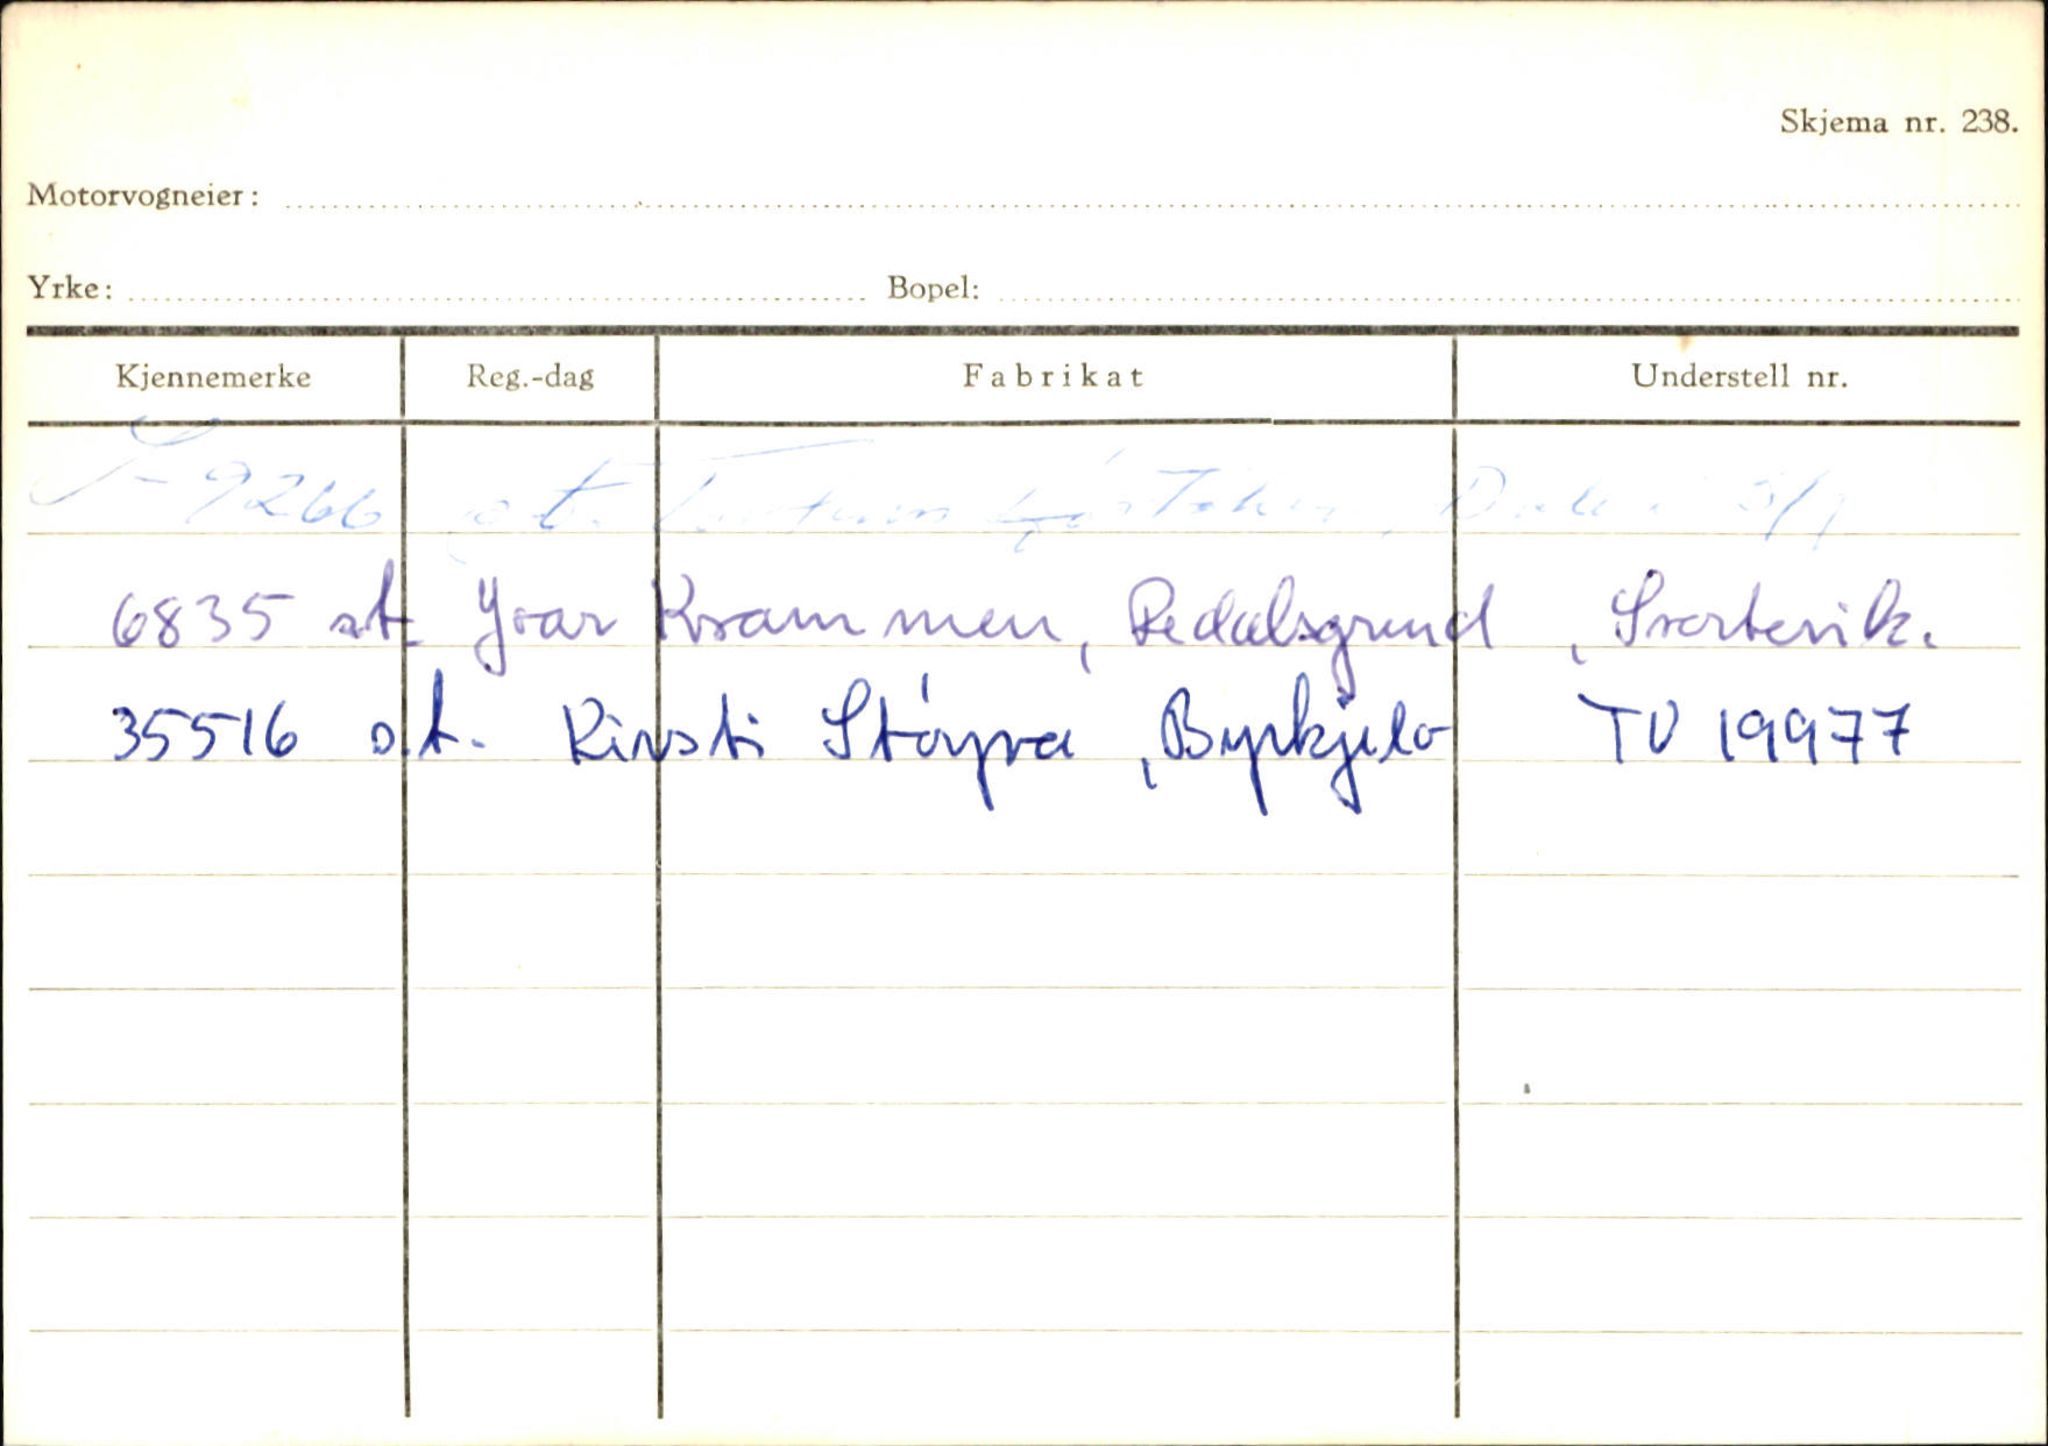 Skjema nr. 238.
Motorvogneier:
Yrke: Bopel:
Kjennemerke Reg.-dag Fabrikat Understell nr.
S-9266 o.t. Dale 3/9
6835 ot. Yvar Krammen, Redalsgrend, Svortevik.
35516 o.t. Kirsti Støyva, Byrkjelo TU 19977